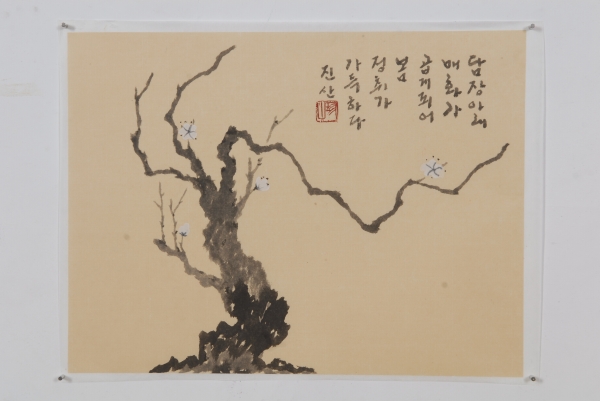 담장아래
매화가
곱게피어
봄
정취가
가득하다
진산